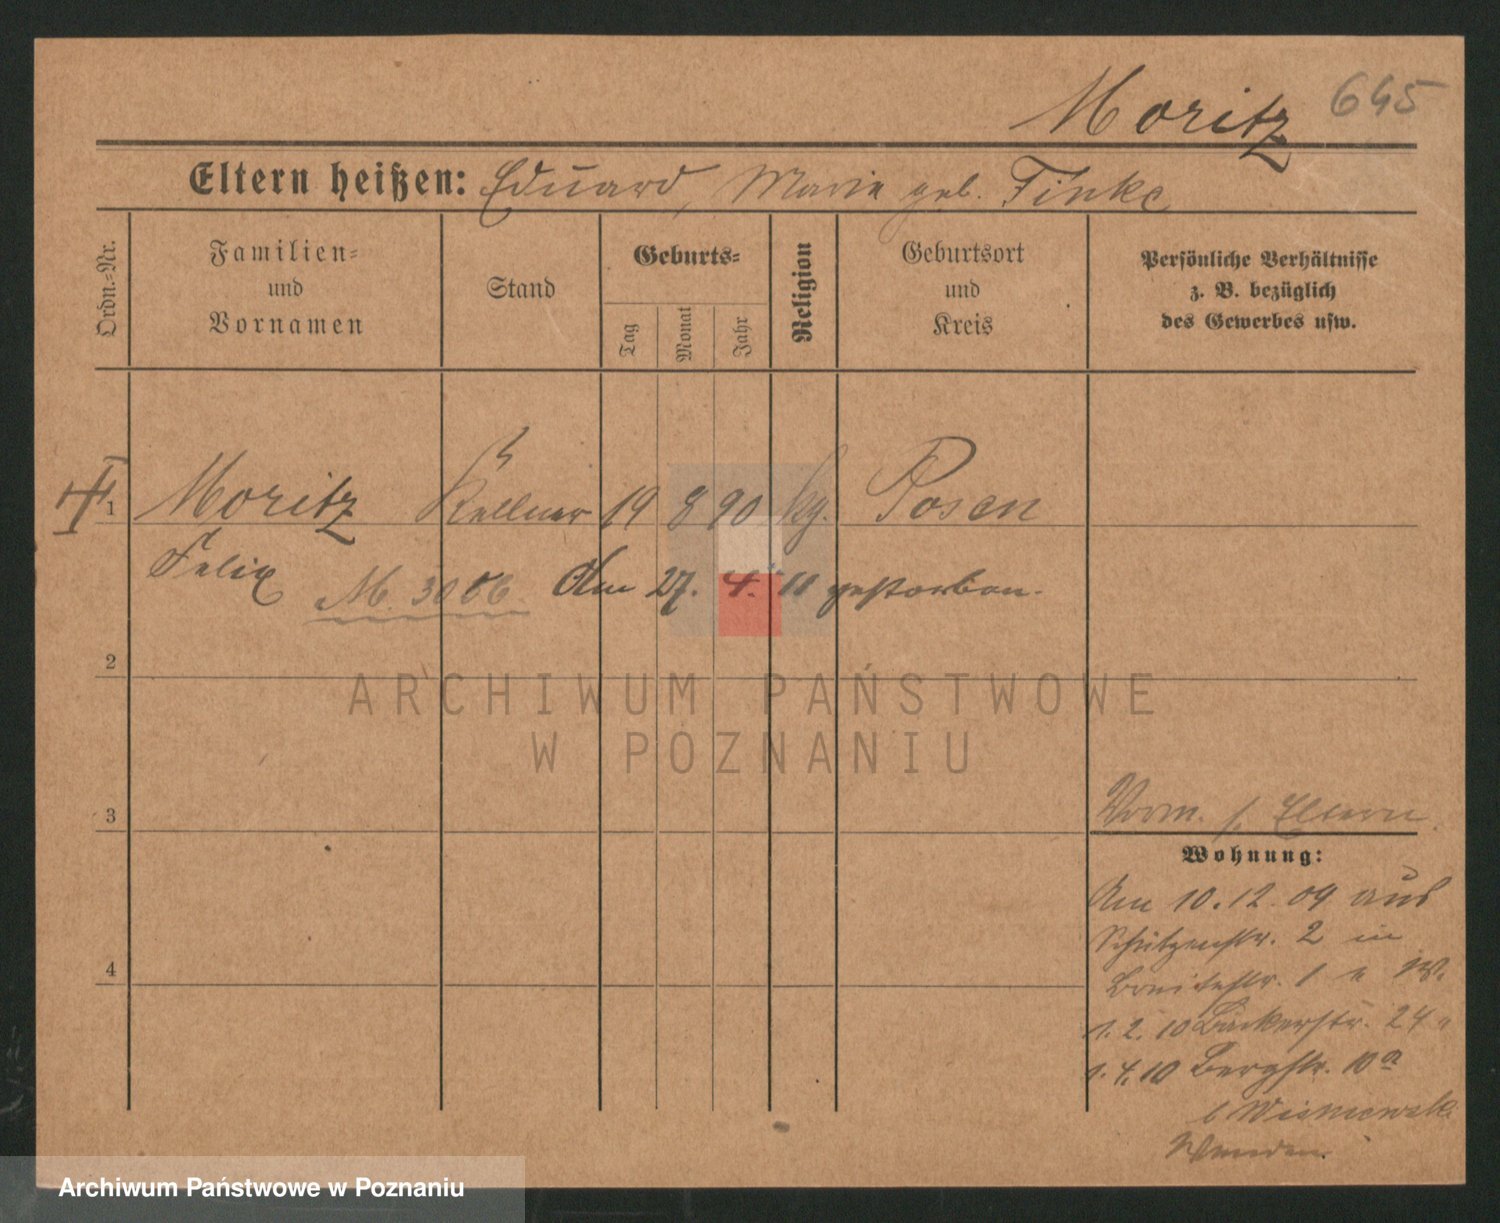 Moritz 645
Eltern heißen: Eduard, Marie geb. Finke
Ordn.-Nr.
Familien-
und
Vornamen
Stand
Geburts-
Tag
Monat
Jahr
Religion
Geburtsort
und
Kreis
Persönliche Verhältnisse
z. B. bezüglich
des Gewerbes usw.
1 Moritz Kellner 19 8 90 kg. Posen
Felix M. 3086. Am 27. 4. 11 gestorben.
2
ARCHIWUM PAŃSTWOWE
W POZNANIU
3
Vorm. s. Eltern.
Wohnung:
Am 10.12.09 aus
Schützenstr. 2 in
Breitestr. 1
4
1.2.10 Bäckerstr. 24
1.4.10 Bergstr. 10a
b Wisniewski
Wenden.
Archiwum Państwowe w Poznaniu